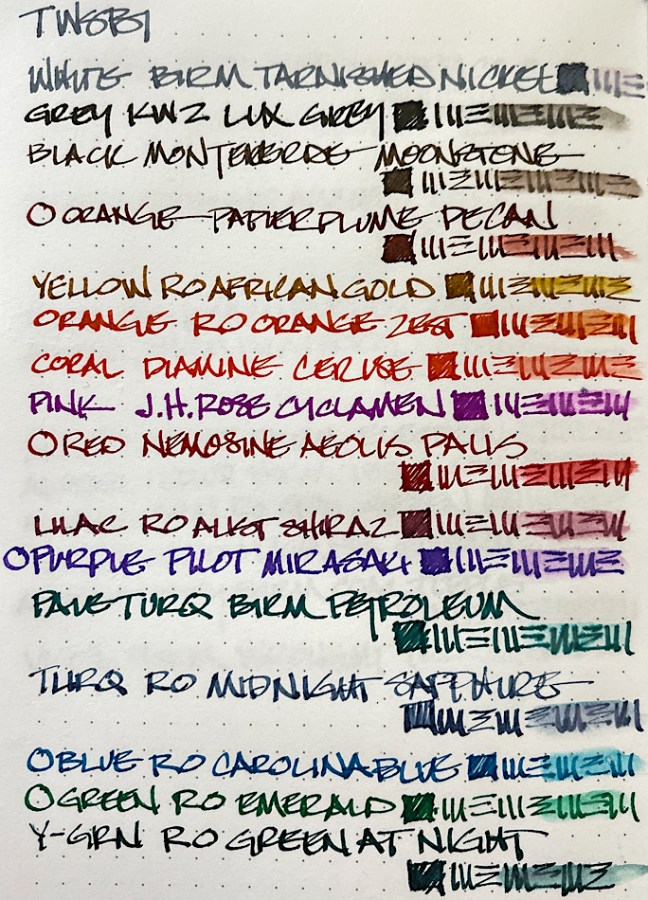 TWSBI
WHITE BIRM TARNISHED NICKEL
GREY KWZ LUX GREY
BLACK MONTEVERDE MOONSTONE
O ORANGE PAPIER PLUME PECAN
YELLOW RO AFRICAN GOLD
ORANGE RO ORANGE ZEST
CORAL DIAMINE CERISE
PINK J.H. ROSE CYCLAMEN
O RED NEMOSINE AEOLIS PALIS
LILAC RO AUST SHIRAZ
O PURPLE PILOT MURASAKI
PALE TURQ BIRM PETROLEUM
TURQ RO MIDNIGHT SAPPHIRE
O BLUE RO CAROLINA BLUE
O GREEN RO EMERALD
Y-GRN RO GREEN AT NIGHT